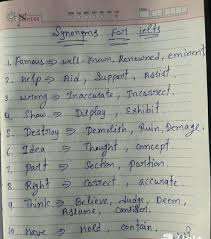 Synonyms For ielts
1. Famous ⇒ well-known, Renowned, eminent
2. Help ⇒ Aid, Support, Assist
3. wrong ⇒ Inaccurate, Incorrect.
4. Show ⇒ Display, Exhibit
5. Destroy ⇒ Demolish, Ruin, Demage.
6. Idea ⇒ Thought, concept.
7. Part ⇒ Section, portion.
8. Right ⇒ correct, accurate.
9. Think ⇒ Believe, Judge, Deem,
Assume, consider.
10. Have ⇒ Hold, contain.